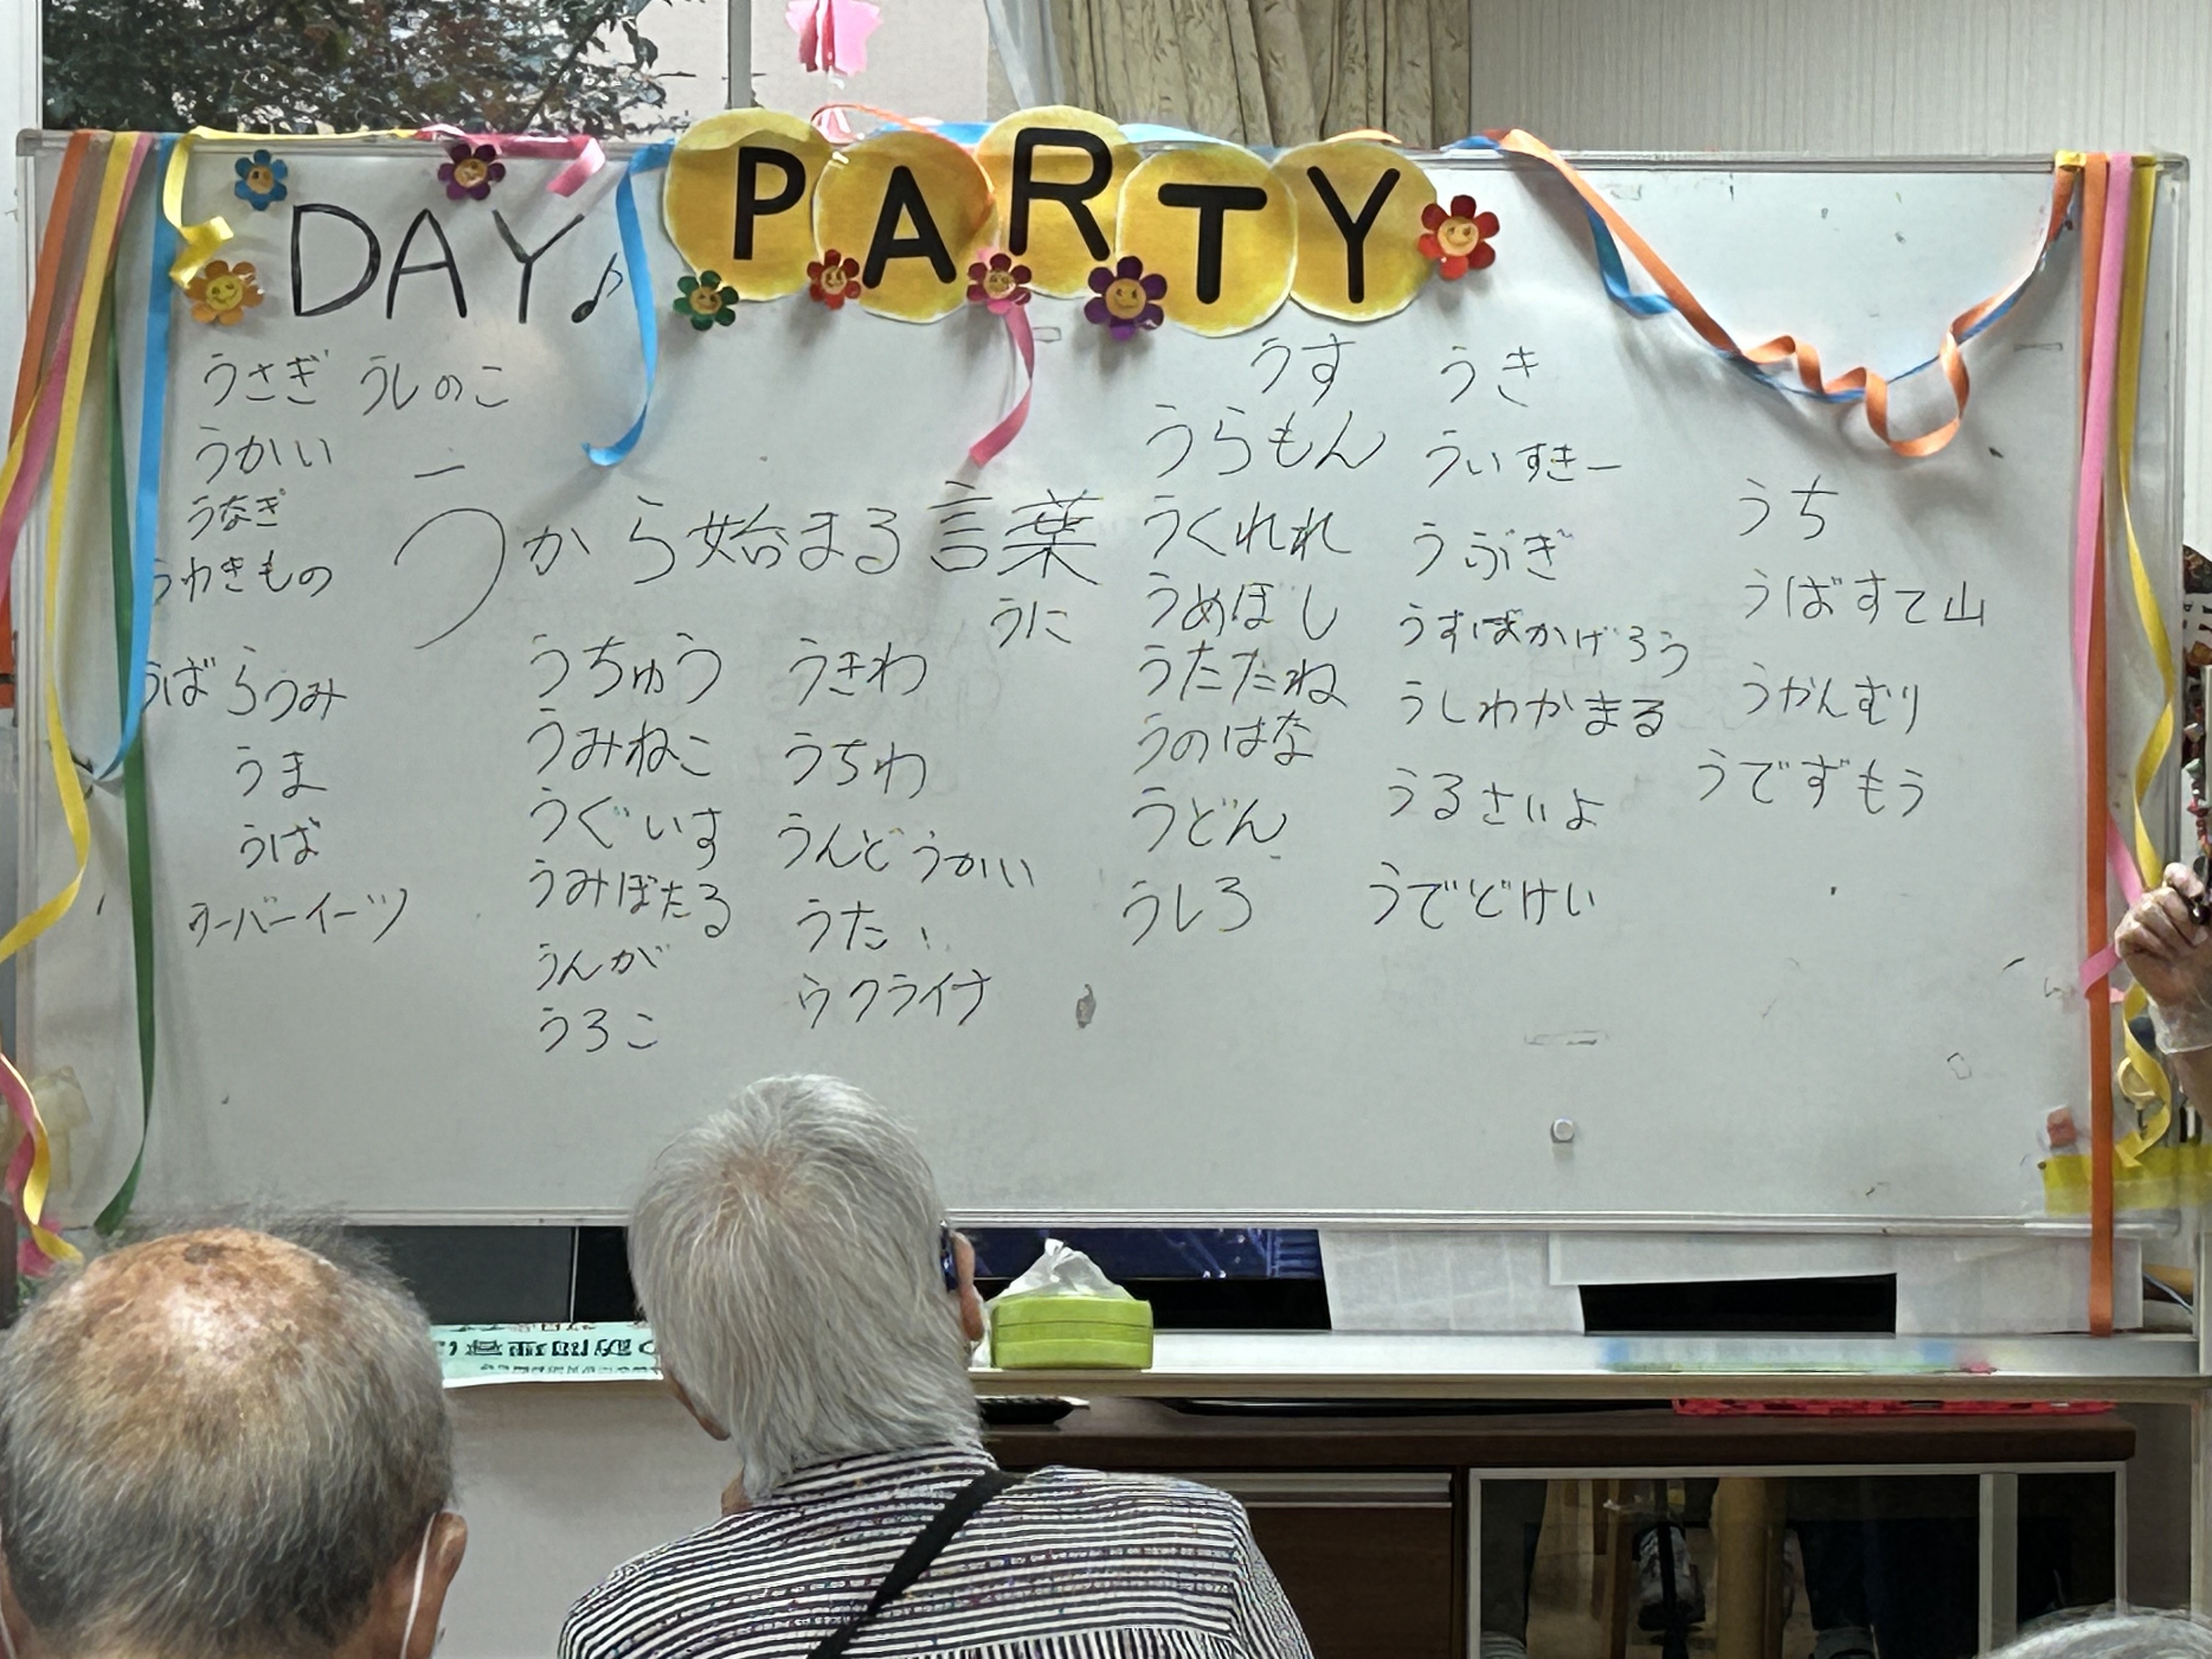 DAY♪ PARTY
うさぎ うしのこ
うかい
うなぎ
うわきもの
うばらつみ
うま
うば
ウーバーイーツ
うから始まる言葉
うに
うちゅう
うみねこ
うぐいす
うみぼたる
うんが
うろこ
うきわ
うちわ
うんどうかい
うた
ウクライナ
うす
うらもん
うくれれ
うめぼし
うたたね
うのはな
うどん
うしろ
うき
うぃすきー
うぶぎ
うすばかげろう
うしわかまる
うるさいよ
うでどけい
うち
うばすて山
うかんむり
うでずもう